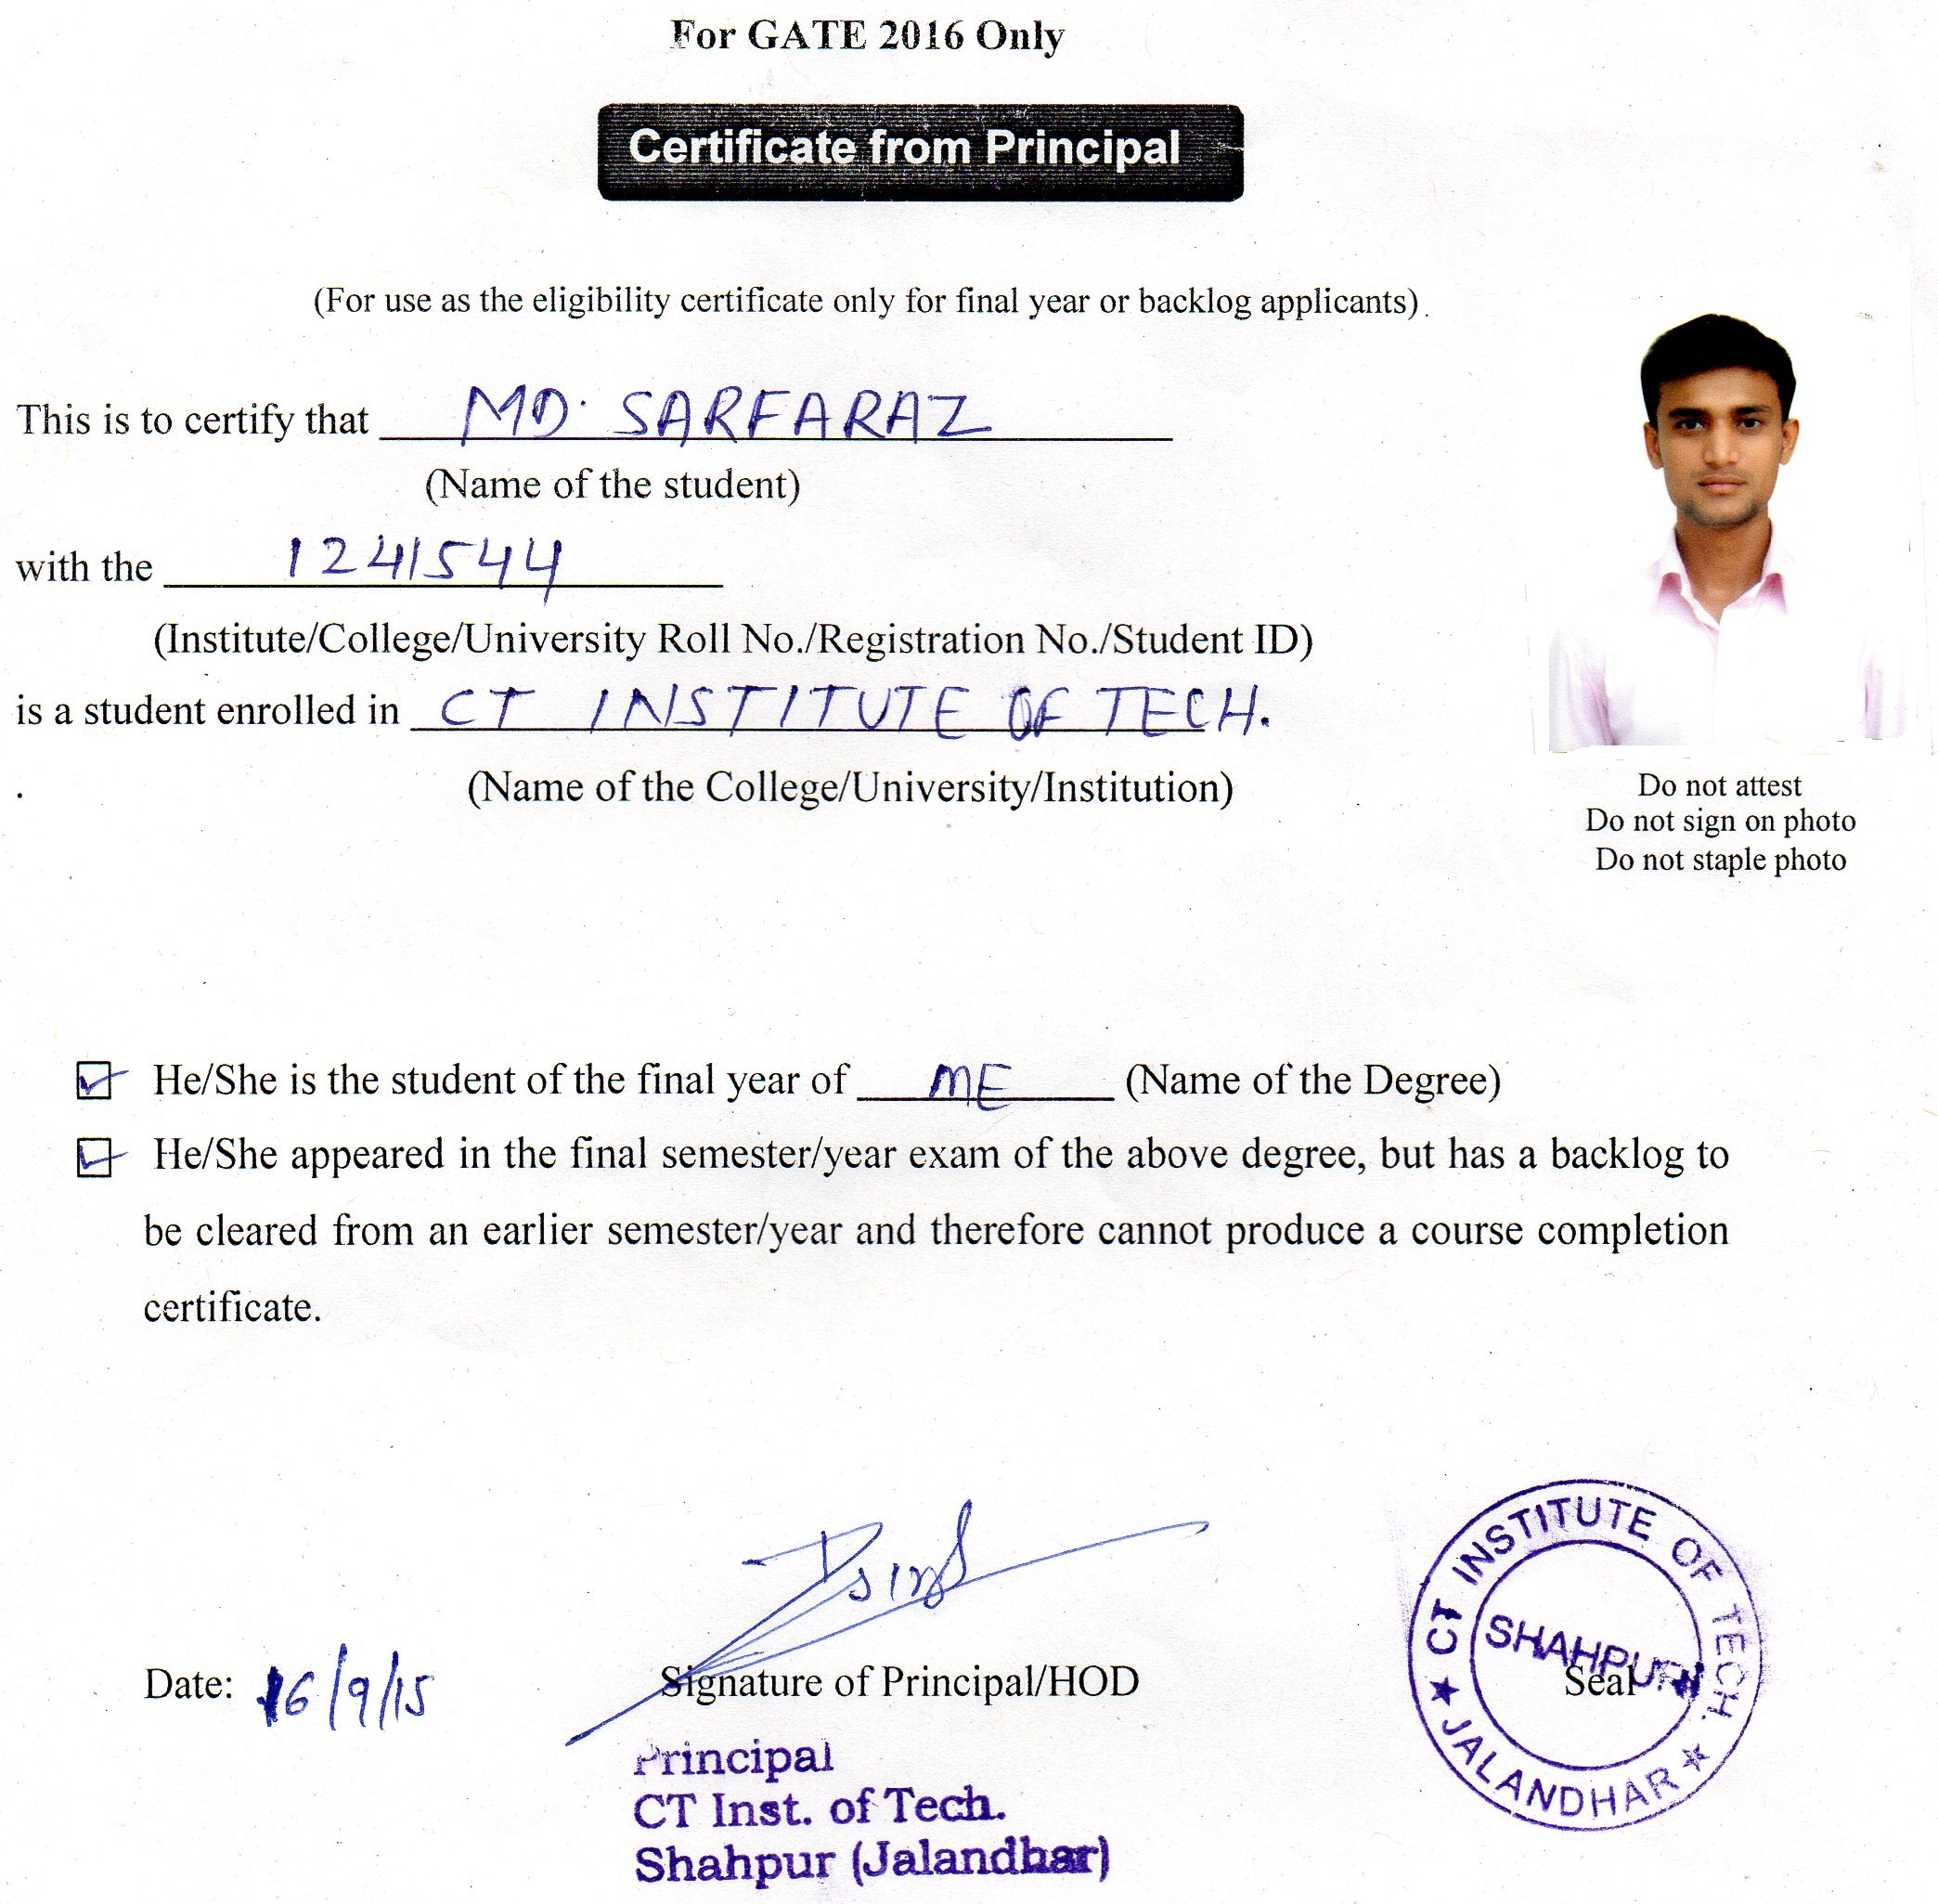 For GATE 2016 Only
Certificate from Principal
(For use as the eligibility certificate only for final year or backlog applicants).
This is to certify that MD. SARFARAZ
(Name of the student)
with the 1241544
(Institute/College/University Roll No./Registration No./Student ID)
is a student enrolled in CT INSTITUTE OF TECH.
(Name of the College/University/Institution)
Do not attest
Do not sign on photo
Do not staple photo
He/She is the student of the final year of ME (Name of the Degree)
He/She appeared in the final semester/year exam of the above degree, but has a backlog to
be cleared from an earlier semester/year and therefore cannot produce a course completion
certificate.
Date: 16/9/15
Signature of Principal/HOD
Seal
Principal
CT Inst. of Tech.
Shahpur (Jalandhar)
CT INSTITUTE OF TECH.
SHAHPUR
★ JALANDHAR ★